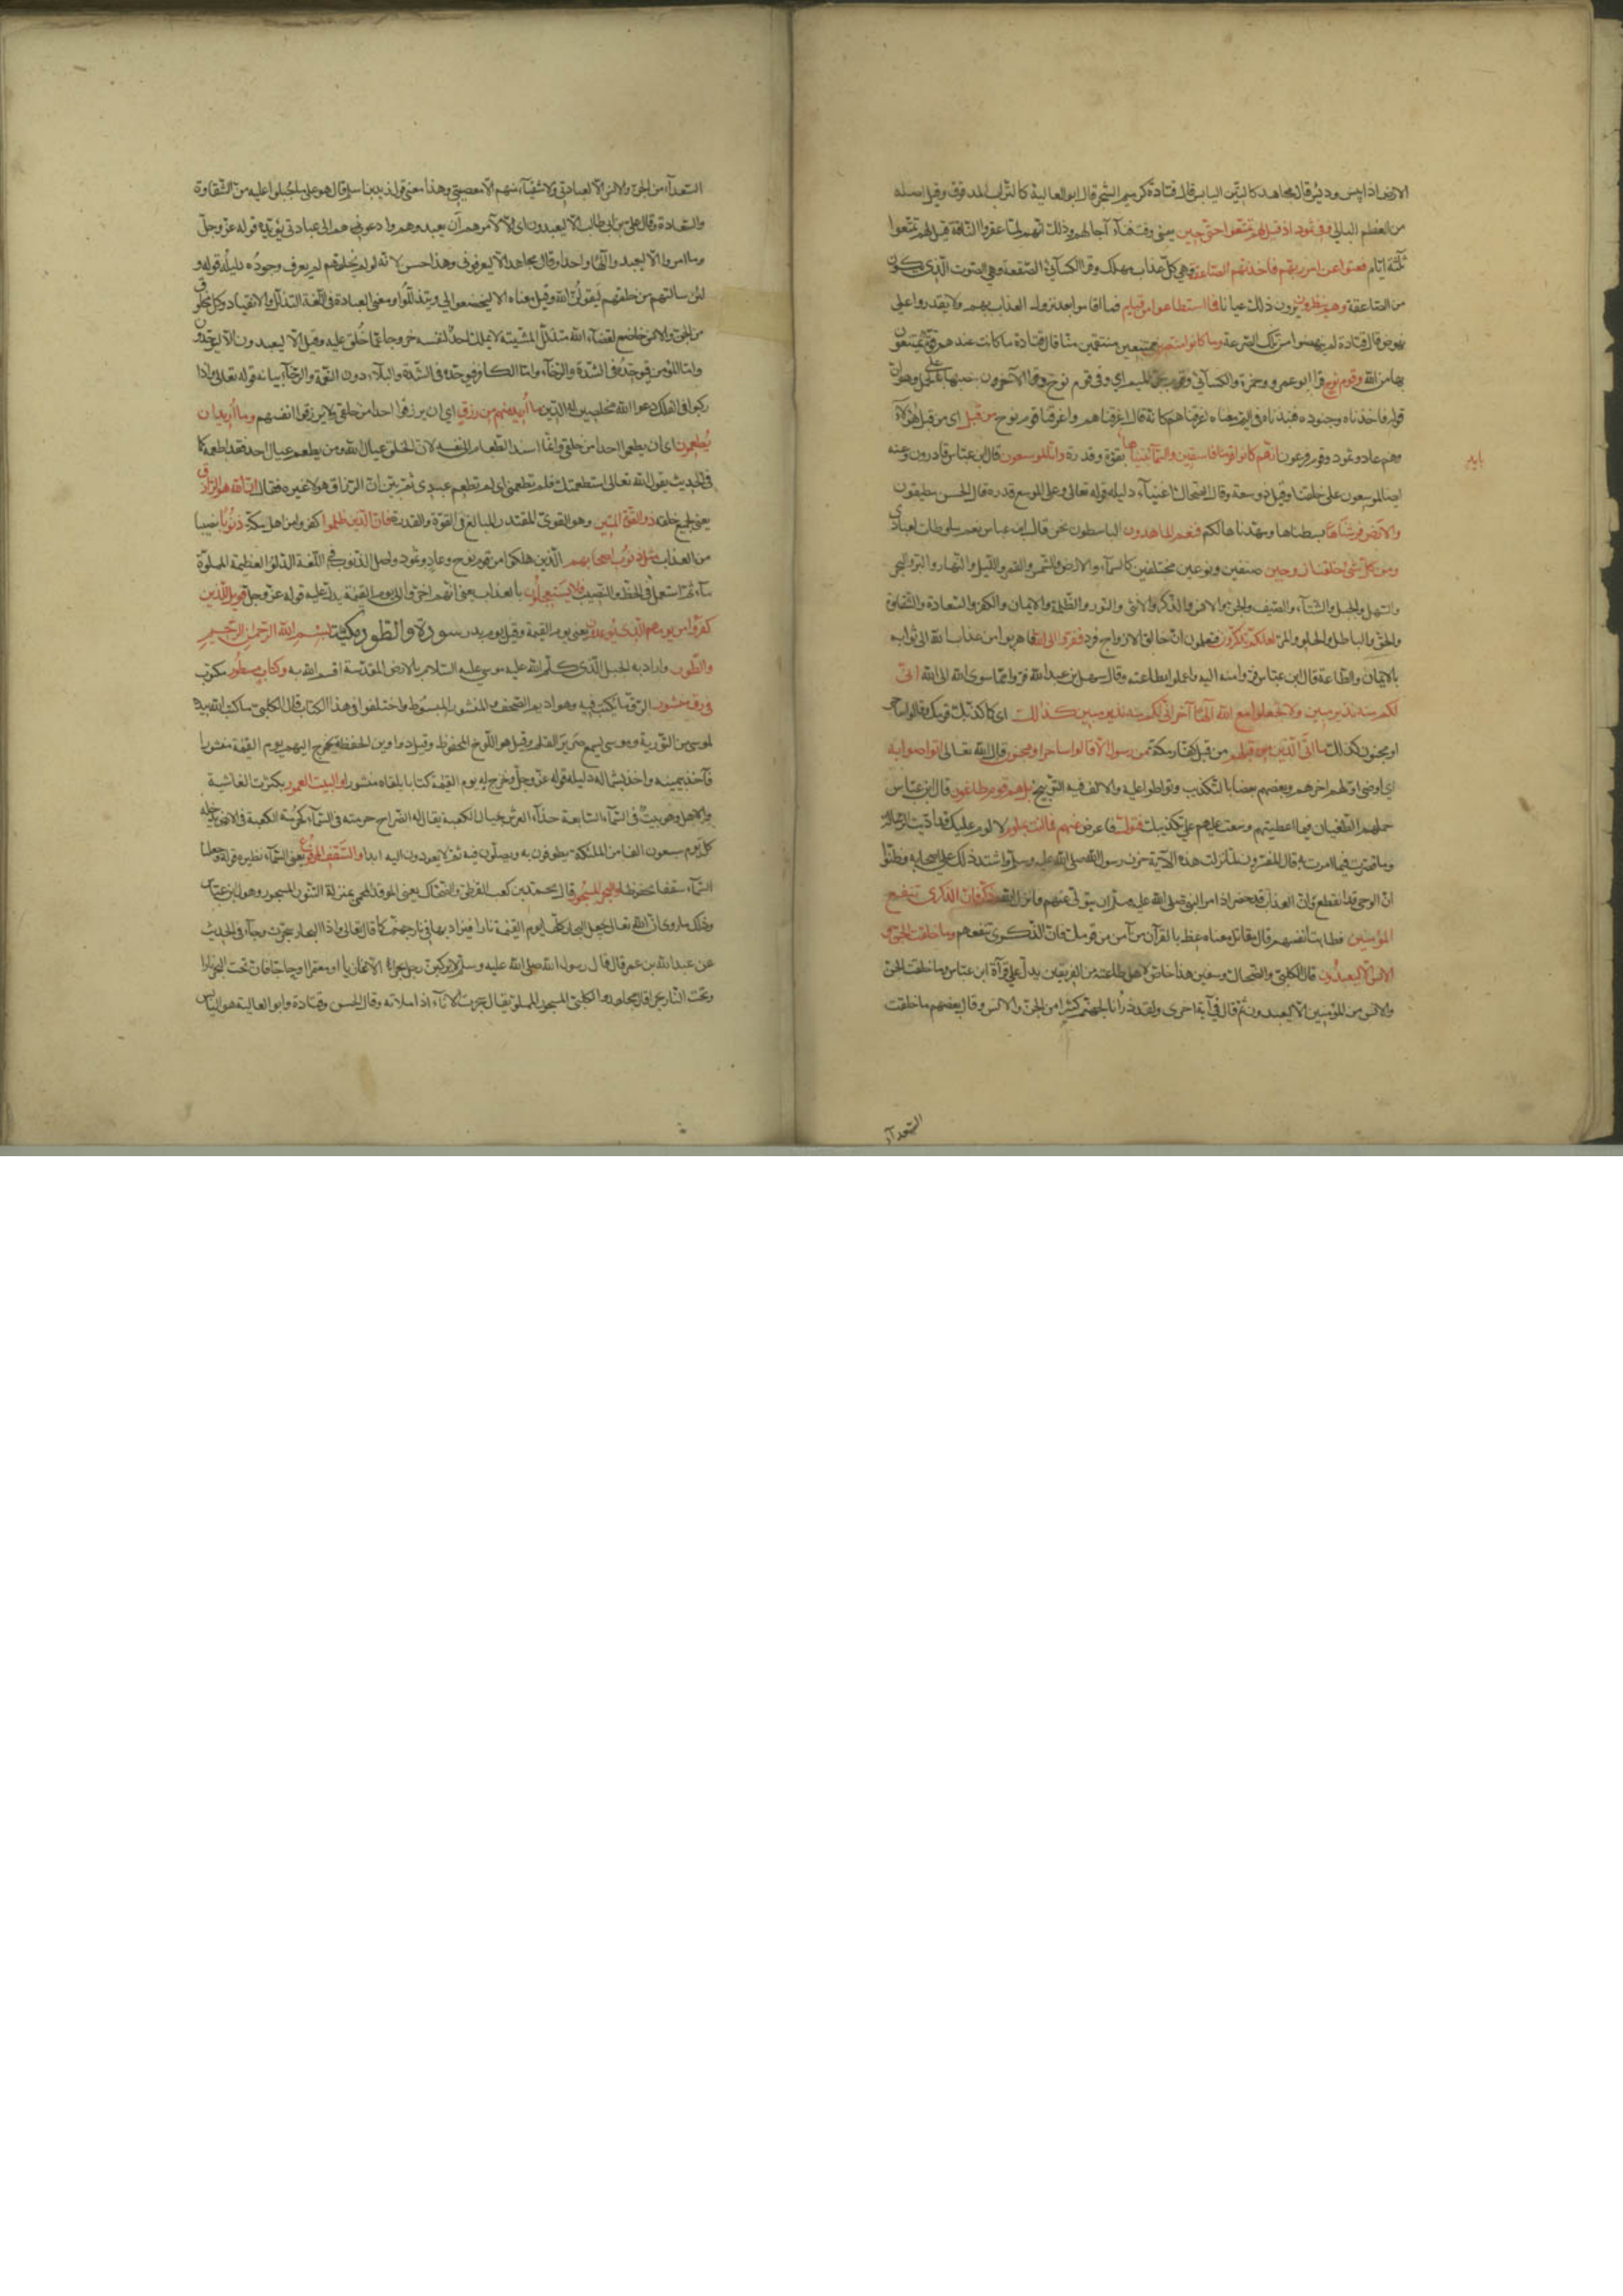 الارض اذا يبس وديس قال مجاهد كالتبن اليابس قال قتادة كرميم الشجر قال ابو العالية كالتراب المدقوق وقيل اصله
من العظم البالى وفى ثمود اذ قيل لهم تمتعوا حتى حين يعنى وقت فناء آجالهم وذلك انهم لما عقروا الناقة قيل لهم تمتعوا
ثلثة ايام فعتوا عن امر ربهم فاخذتهم الصاعقة وهى كل عذاب مهلك وقرا الكسآئى الصعقة وهى الصوت الذى يكون
من الصاعقة وهم ينظرون يرون ذلك عيانا فما استطاعوا من قيام فما اقاموا بعد نزول العذاب بهم ولا يقدروا على
نهوض قال قتادة لم ينهضوا من تلك الصرعة وما كانوا منتصرين ممتنعين منتقمين منا قال قتادة ما كانت عندهم قوة يمتنعون
بها من الله وقوم نوح قرا ابو عمرو وحمزة والكسآئى وقوم بجر الميم اى وفى قوم نوح وقرا الآخرون بنصبها بالحمل على وهو ان
قوله فاخذناه وجنوده فنبذناهم فى اليم معناه اغرقناهم كانه قال اغرقناهم واغرقنا قوم نوح من قبل اى من قبل هؤلآء
وهم عاد وثمود وقوم فرعون انهم كانوا قوما فاسقين والسمآء بنيناها بقوة وقدرة وانا لموسعون قال ابن عباس قادرون وعنه
ايضا لموسعون على خلقنا وقيل ذو سعة وقال الضحاك اغنيآء دليله قوله تعالى وعلى الموسع قدره قال الحسن مطيقون
والارض فرشناها بسطناها ومهدناها لكم فنعم الماهدون الباسطون نحن قال ابن عباس نعم ما وطات لعبادى
ومن كل شئ خلقنا زوجين صنفين ونوعين مختلفين كالسمآء والارض والشمس والقمر والليل والنهار والبر والبحر
والسهل والجبل والشتآء والصيف والجن والانس والذكر والانثى والنور والظلمة والايمان والكفر والسعادة والشقاوة
والحق والباطل والحلو والمر لعلكم تذكرون فتعلمون ان خالق الازواج فرد ففروا الى الله فاهربوا من عذاب الله الى ثوابه
بالايمان والطاعة قال ابن عباس فروا منه اليه واعملوا بطاعته وقال سهل بن عبد الله فروا مما سوى الله الى الله انى
لكم منه نذير مبين ولا تجعلوا مع الله الها آخر انى لكم منه نذير مبين كذلك اى كما كذبك قومك وقالوا ساحر
او مجنون كذلك ما اتى الذين من قبلهم من قبل كفار مكة من رسول الا قالوا ساحر او مجنون قال الله تعالى اتواصوا به
اى اوصى اولهم آخرهم وبعضهم بعضا بالتكذيب وتواطوا عليه والالف فيه للتوبيخ بل هم قوم طاغون قال ابن عباس
حملهم الطغيان فيما اعطيتهم ووسعت عليهم على تكذيبك فتول فاعرض عنهم فما انت بملوم لا لوم عليك فقد اديت الرسالة
وما قصرت فيما امرت به قال المفسرون لما نزلت هذه الآية حزن رسول الله صلى الله عليه وسلم واشتد ذلك على اصحابه وظنوا
ان الوحى قد انقطع وان العذاب قد حضر اذ امر النبى صلى الله عليه وسلم ان يتولى عنهم فانزل الله وذكر فان الذكرى تنفع
المؤمنين فطابت انفسهم قال مقاتل معناه عظ بالقرآن من آمن من قومك فان الذكرى تنفعهم وما خلقت الجن و
الانس الا ليعبدون قال الكلبى والضحاك وسفين هذا خاص لاهل طاعته من الفريقين يدل عليه قرآة ابن عباس وما خلقت الجن
والانس من المؤمنين الا ليعبدون ثم قال فى آية اخرى ولقد ذرأنا لجهنم كثيرا من الجن والانس وقال بعضهم ما خلقت
السعدآء
السعدآء من الجن والانس الا لعبادتى ولا شقيآء منهم الا لمعصيتى وهذا معنى قول زيد بن اسلم قال هو على ما جبلوا عليه من الشقاوة
والسعادة وقال على بن ابى طالب الا ليعبدون اى الا لآمرهم ان يعبدوهم وادعوهم الى عبادتى يؤيده قوله عز وجل
وما امروا الا ليعبدوا الها واحدا وقال مجاهد الا ليعرفونى وهذا احسن لانه لو لم يخلقهم لم يعرف وجوده دليله قوله و
لئن سالتهم من خلقهم ليقولن الله وقيل معناه الا ليخضعوا الى ويتذللوا ومعنى العبادة فى اللغة التذلل والانقياد وكل مخلوق
من الجن والانس خاضع لقضآء الله متذلل لمشيته لا يملك احد لنفسه خروجا عما خلق عليه وقيل الا ليعبدون الا ليوحدون
فاما المؤمن فيوحده فى الشدة والرخآء واما الكافر فيوحده فى الشدة والبلآء دون النعمة والرخآء بيانه قوله تعالى فاذا
ركبوا فى الفلك دعوا الله مخلصين له الدين ما اريد منهم من رزق اى ان يرزقوا احدا من خلقى ولا يرزقوا انفسهم وما اريد ان
يطعمون اى ان يطعموا احدا من خلقى وانما اسند الطعام الى نفسه لان الخلق عيال الله ومن يطعم عيال احد فقد اطعمه كما
فى الحديث يقول الله تعالى استطعمتك فلم تطعمنى اى لم تطعم عبدى ثم بين ان الرزاق هو لا غيره فقال ان الله هو الرزاق
يعنى لجميع خلقه ذو القوة المتين وهو القوى المقتدر المبالغ فى القوة والقدرة فان للذين ظلموا كفروا من اهل مكة ذنوبا نصيبا
من العذاب مثل ذنوب اصحابهم الذين هلكوا من قوم نوح وعاد وثمود واصل الذنوب فى اللغة الدلو العظيمة المملوة
مآء ثم استعمل فى الحظ والنصيب فلا يستعجلون بالعذاب يعنى انهم اخروا الى يوم القيمة يدل عليه قوله عز وجل فويل للذين
كفروا من يومهم الذى يوعدون يعنى يوم القيمة وقيل يوم بدر سورة والطور مكية بسم الله الرحمن الرحيم
والطور واراد به الجبل الذى كلم الله عليه موسى عليه السلام بالارض المقدسة اقسم الله به وكتاب مسطور مكتوب
فى رق منشور الرق ما يكتب فيه وهو اديم الصحف والمنشور المبسوط واختلفوا فى هذا الكتاب قال الكلبى ما كتب الله بيده
لموسى من التورية وموسى يسمع صرير القلم وقيل هو اللوح المحفوظ وقيل دواوين الحفظة يخرج اليهم يوم القيمة منشورا
فآخذ بيمينه وآخذ بشماله دليله قوله عز وجل ونخرج له يوم القيمة كتابا يلقاه منشورا والبيت المعمور بكثرة الغاشية
والاهل وهو بيت فى السمآء السابعة حذآء العرش بحيال الكعبة يقال له الضراح حرمته فى السمآء كحرمة الكعبة فى الارض يدخله
كل يوم سبعون الفا من الملئكة يطوفون به ويصلون فيه ثم لا يعودون اليه ابدا والسقف المرفوع يعنى السمآء نظيره قوله وجعلنا
السمآء سقفا محفوظا والبحر المسجور قال محمد بن كعب القرظى والضحاك يعنى الموقد المحمى بمنزلة التنور المسجور وهو قول ابن عباس
وذلك ما روى ان الله تعالى يجعل البحار كلها يوم القيمة نارا فيزاد بها فى نار جهنم كما قال تعالى واذا البحار سجرت وجآء فى الحديث
عن عبد الله بن عمر قال قال رسول الله صلى الله عليه وسلم لا يركبن رجل بحرا الا غازيا او معتمرا او حاجا فان تحت البحر نارا
وتحت النار بحرا قال مجاهد والكلبى المسجور المملو يقال سجرت الانآء اذا ملاته وقال الحسن وقتادة وابو العالية هو اليابس